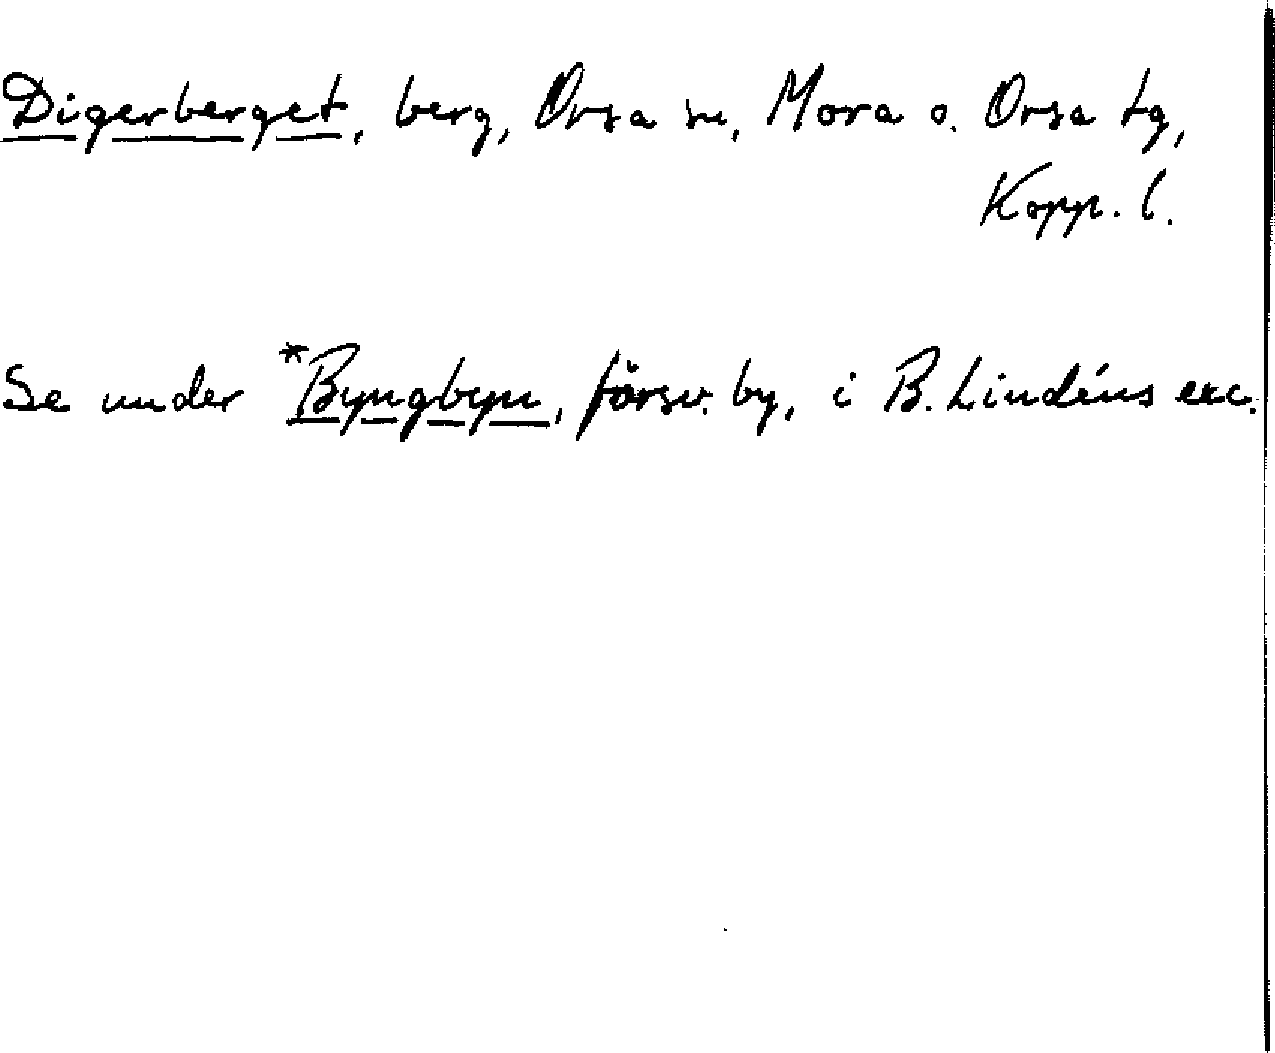 Digerberget, berg, Orsa sn, Mora o. Orsa tg,
Kopp. l.
Se under *Byngbyn, försv. by, i B. Lindéns exc.